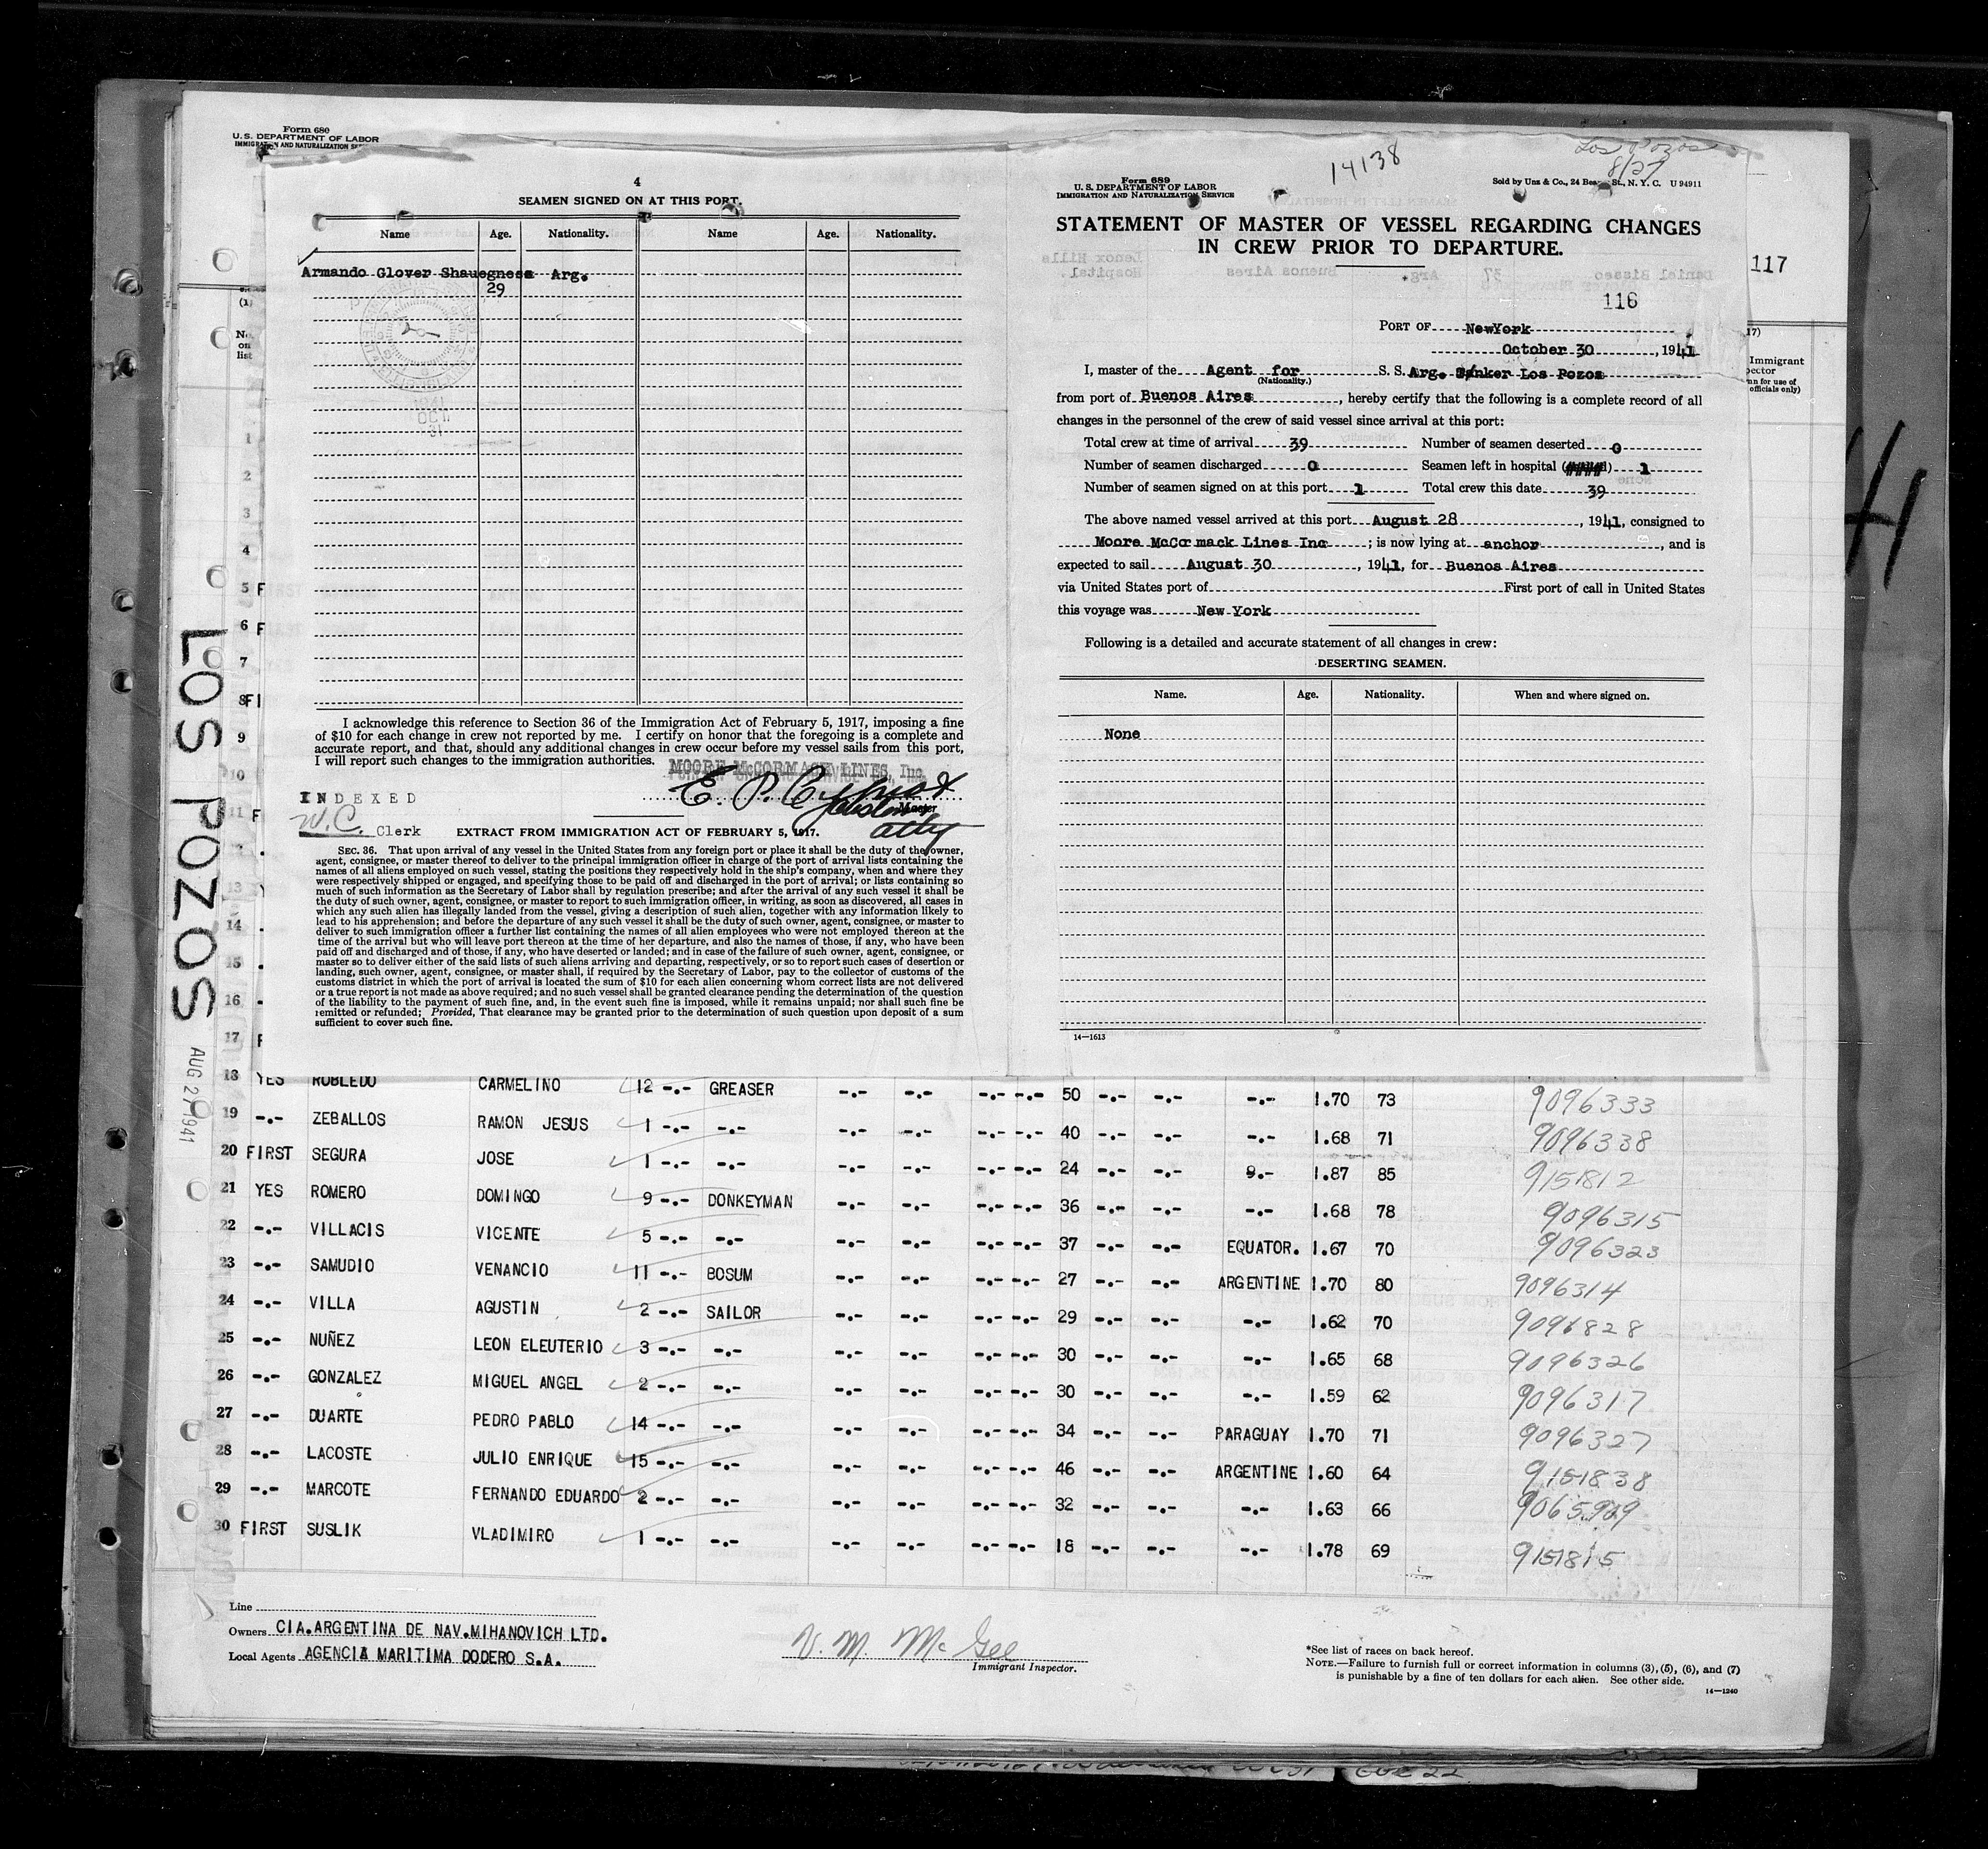 Form 680
U. S. DEPARTMENT OF LABOR
IMMIGRATION AND NATURALIZATION
4
SEAMEN SIGNED ON AT THIS PORT.
Name Age. Nationality. Name Age. Nationality.
Armando Glover Shauegness Arg.
29
I acknowledge this reference to Section 36 of the Immigration Act of February 5, 1917, imposing a fine
of $10 for each change in crew not reported by me. I certify on honor that the foregoing is a complete and
accurate report, and that, should any additional changes in crew occur before my vessel sails from this port,
I will report such changes to the immigration authorities.
MOORE McCORMACK LINES, Inc.
E. P.
Master
atty
INDEXED
W.C. Clerk
EXTRACT FROM IMMIGRATION ACT OF FEBRUARY 5, 1917.
SEC. 36. That upon arrival of any vessel in the United States from any foreign port or place it shall be the duty of the owner,
agent, consignee, or master thereof to deliver to the principal immigration officer in charge of the port of arrival lists containing the
names of all aliens employed on such vessel, stating the positions they respectively hold in the ship's company, when and where they
were respectively shipped or engaged, and specifying those to be paid off and discharged in the port of arrival; or lists containing so
much of such information as the Secretary of Labor shall by regulation prescribe; and after the arrival of any such vessel it shall be
the duty of such owner, agent, consignee, or master to report to such immigration officer, in writing, as soon as discovered, all cases in
which any such alien has illegally landed from the vessel, giving a description of such alien, together with any information likely to
lead to his apprehension; and before the departure of any such vessel it shall be the duty of such owner, agent, consignee, or master to
deliver to such immigration officer a further list containing the names of all alien employees who were not employed thereon at the
time of the arrival but who will leave port thereon at the time of her departure, and also the names of those, if any, who have been
paid off and discharged and of those, if any, who have deserted or landed; and in case of the failure of such owner, agent, consignee, or
master so to deliver either of the said lists of such aliens arriving and departing, respectively, or so to report such cases of desertion or
landing, such owner, agent, consignee, or master shall, if required by the Secretary of Labor, pay to the collector of customs of the
customs district in which the port of arrival is located the sum of $10 for each alien concerning whom correct lists are not delivered
or a true report is not made as above required; and no such vessel shall be granted clearance pending the determination of the question
of the liability to the payment of such fine, and, in the event such fine is imposed, while it remains unpaid; nor shall such fine be
remitted or refunded; Provided, That clearance may be granted prior to the determination of such question upon deposit of a sum
sufficient to cover such fine.
14138
Los Pozos
8/27
Form 689
U. S. DEPARTMENT OF LABOR
IMMIGRATION AND NATURALIZATION SERVICE
Sold by Unz & Co., 24 St., N. Y. C. U 94911
STATEMENT OF MASTER OF VESSEL REGARDING CHANGES
IN CREW PRIOR TO DEPARTURE.
117
116
PORT OF NewYork
October 30, 1941
I, master of the Agent for S. S. Arg. Tanker Los Pozos
(Nationality.)
from port of Buenos Aires, hereby certify that the following is a complete record of all
changes in the personnel of the crew of said vessel since arrival at this port:
Total crew at time of arrival 39 Number of seamen deserted 0
Number of seamen discharged 0 Seamen left in hospital 1
Number of seamen signed on at this port 1 Total crew this date 39
The above named vessel arrived at this port August 28, 1941, consigned to
Moore McCormack Lines Inc; is now lying at anchor, and is
expected to sail August 30, 1941, for Buenos Aires
via United States port of First port of call in United States
this voyage was New York
Following is a detailed and accurate statement of all changes in crew:
DESERTING SEAMEN.
Name. Age. Nationality. When and where signed on.
None
14—1613
Immigrant
officials only)
LOS POZOS
AUG 27 1941
No.
on
list
1
2
3
4
5 F
6 F
7
8 FI
9
10
11 F
13
14
15
16
17 F
18 YES ROBLEDO CARMELINO 12 -.- GREASER -.- -.- -.- -.- 50 -.- -.- -.- 1.70 73 9096333
19 -.- ZEBALLOS RAMON JESUS 1 -.- -.- -.- -.- -.- -.- 40 -.- -.- -.- 1.68 71 9096338
20 FIRST SEGURA JOSE 1 -.- -.- -.- -.- -.- -.- 24 -.- -.- 9.- 1.87 85 9151812
21 YES ROMERO DOMINGO 9 -.- DONKEYMAN -.- -.- -.- -.- 36 -.- -.- -.- 1.68 78 9096315
22 -.- VILLACIS VICENTE 5 -.- -.- -.- -.- -.- -.- 37 -.- -.- EQUATOR. 1.67 70 9096323
23 -.- SAMUDIO VENANCIO 11 -.- BOSUM -.- -.- -.- -.- 27 -.- -.- ARGENTINE 1.70 80 9096314
24 -.- VILLA AGUSTIN 2 -.- SAILOR -.- -.- -.- -.- 29 -.- -.- -.- 1.62 70 9096828
25 -.- NUÑEZ LEON ELEUTERIO 3 -.- -.- -.- -.- -.- -.- 30 -.- -.- -.- 1.65 68 9096326
26 -.- GONZALEZ MIGUEL ANGEL 2 -.- -.- -.- -.- -.- -.- 30 -.- -.- -.- 1.59 62 9096317
27 -.- DUARTE PEDRO PABLO 14 -.- -.- -.- -.- -.- -.- 34 -.- -.- PARAGUAY 1.70 71 9096327
28 -.- LACOSTE JULIO ENRIQUE 15 -.- -.- -.- -.- -.- -.- 46 -.- -.- ARGENTINE 1.60 64 9151838
29 -.- MARCOTE FERNANDO EDUARDO 2 -.- -.- -.- -.- -.- -.- 32 -.- -.- -.- 1.63 66
30 FIRST SUSLIK VLADIMIRO 1 -.- -.- -.- -.- -.- -.- 18 -.- -.- -.- 1.78 69 9151815
Line
Owners CIA.ARGENTINA DE NAV.MIHANOVICH LTD.
Local Agents AGENCIA MARITIMA DODERO S.A.
V. M. McGee
Immigrant Inspector.
*See list of races on back hereof.
NOTE.—Failure to furnish full or correct information in columns (3), (5), (6), and (7)
is punishable by a fine of ten dollars for each alien. See other side.
14—1240